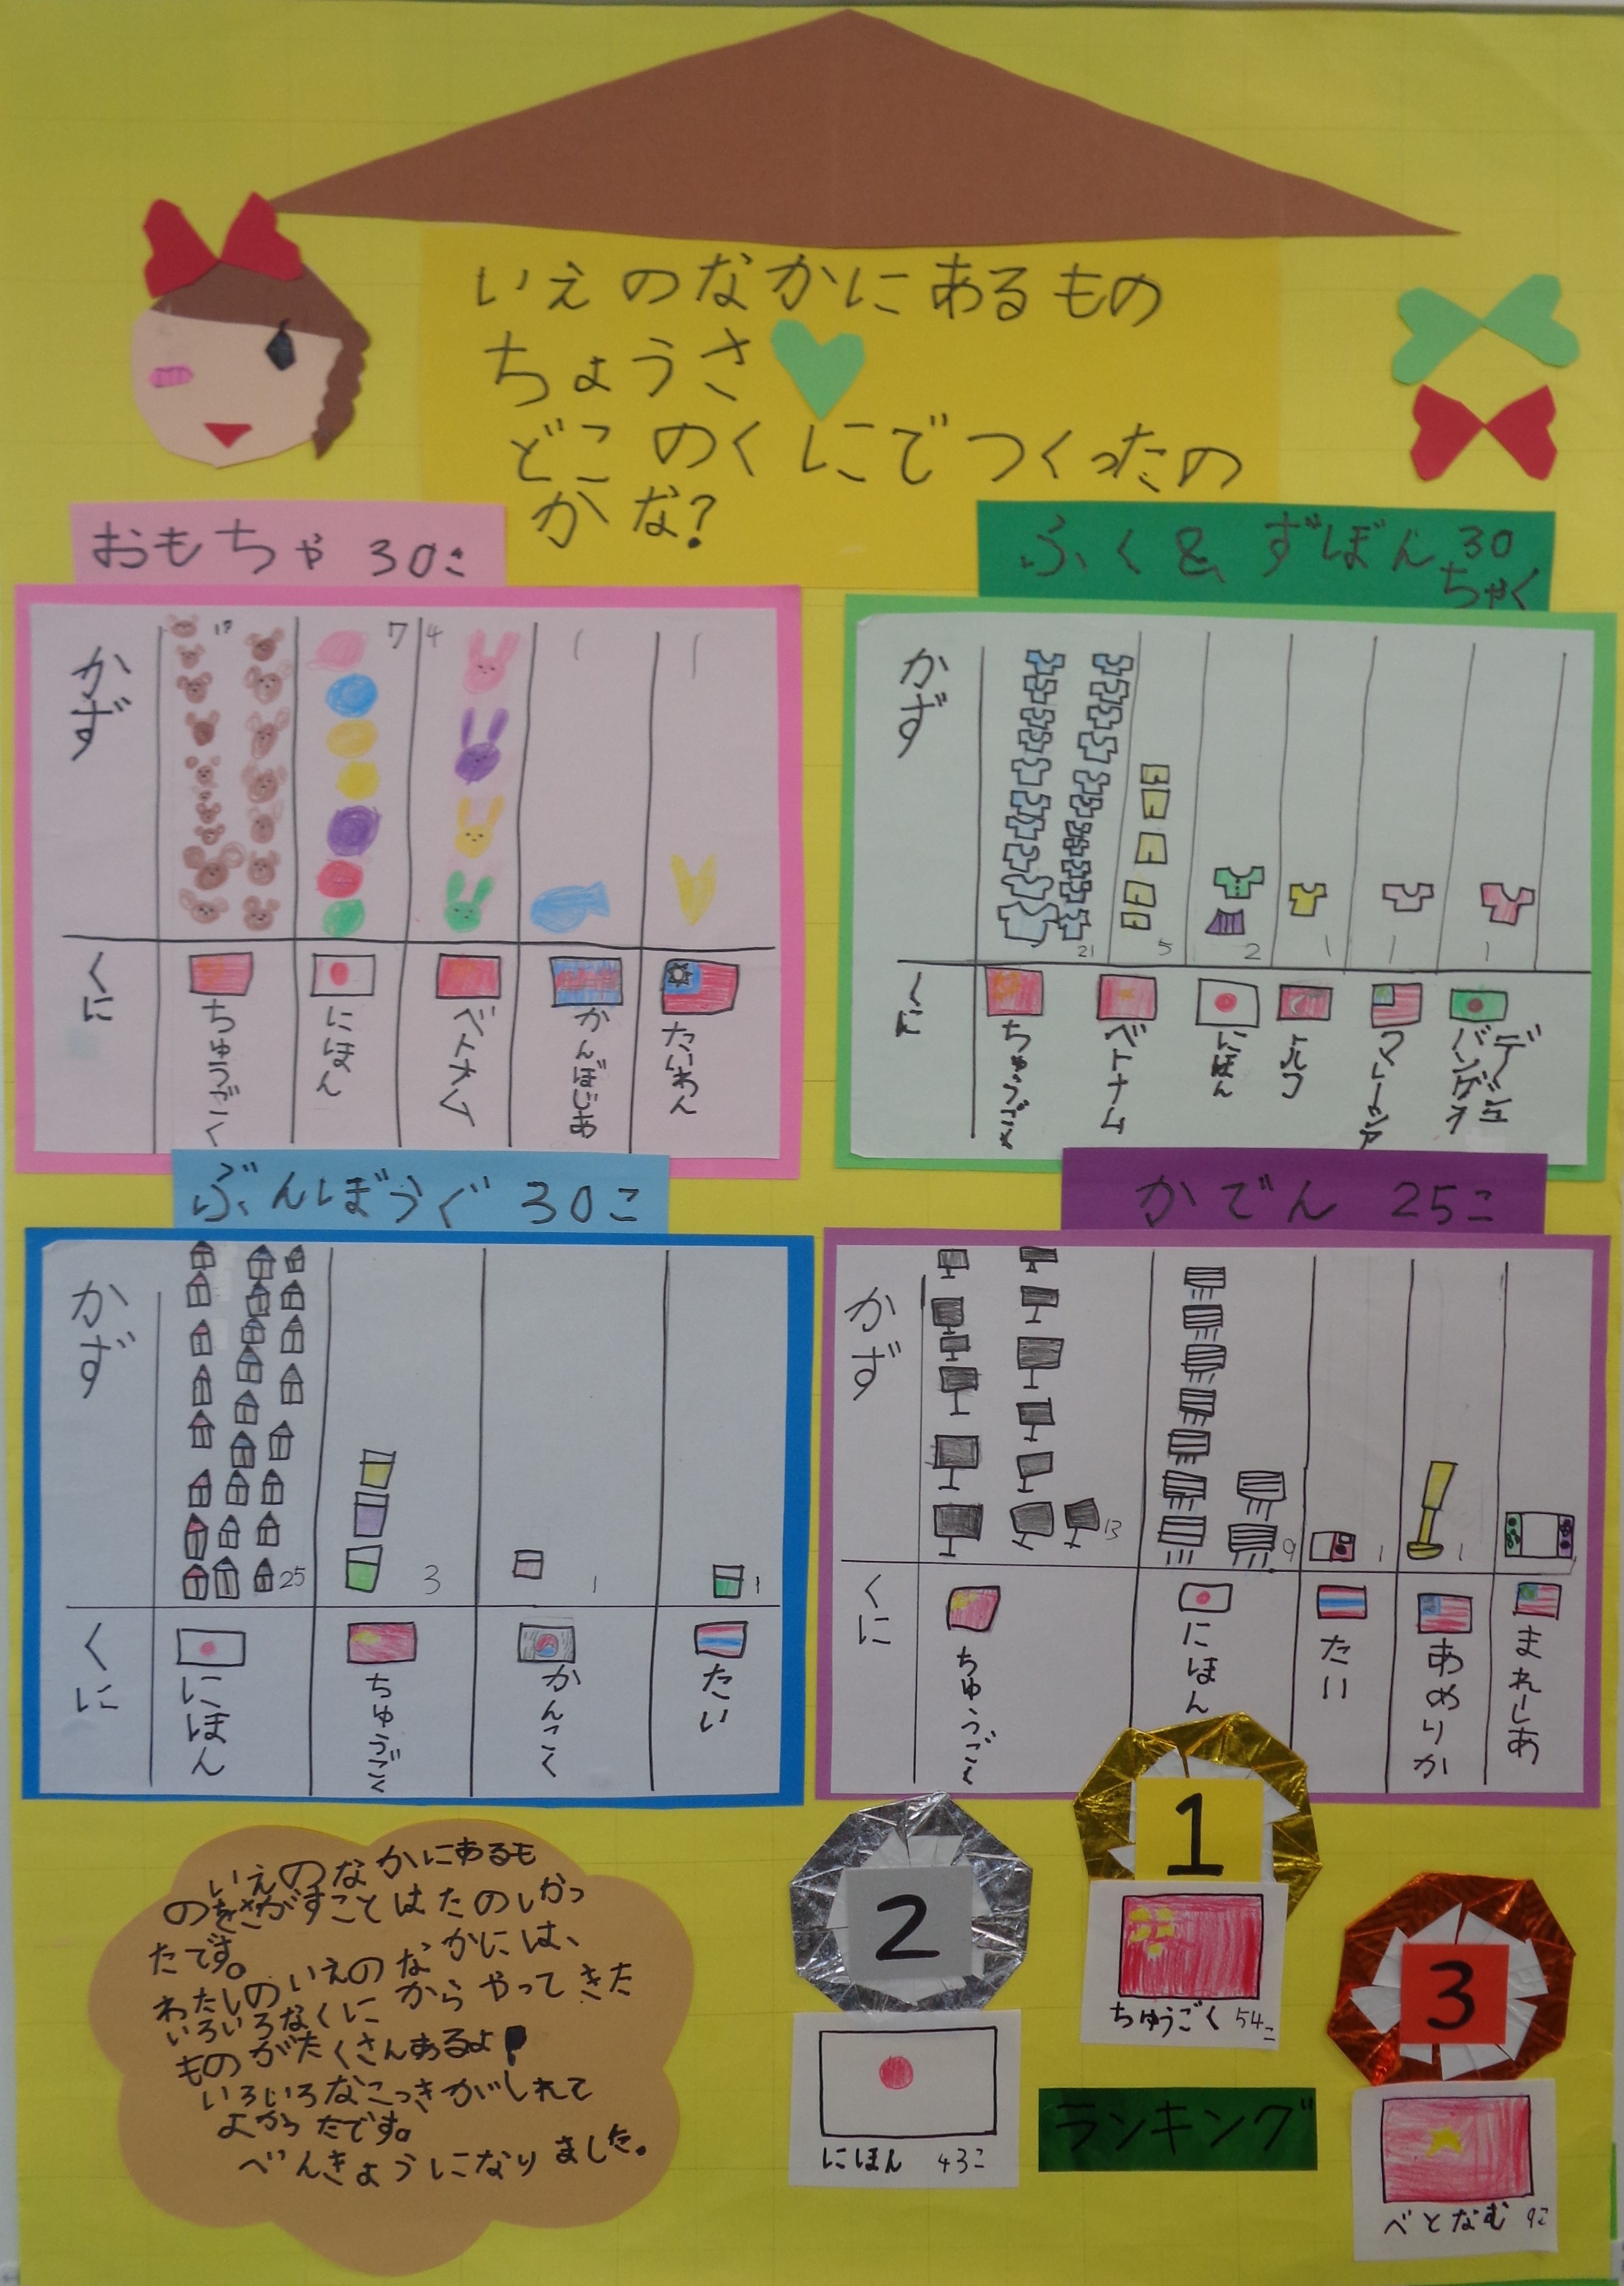 いえのなかにあるもの
ちょうさ
どこのくにでつくったの
かな?
おもちゃ 30こ
かず
17
7
4
1
1
くに
ちゅうごく
にほん
ベトナム
かんぼじあ
たいわん
ふく&ずぼん 30
ちゃく
かず
21
5
2
1
1
1
くに
ちゅうごく
ベトナム
にほん
トルコ
マレーシア
バングラ
デシュ
ぶんぼうぐ 30こ
かず
25
3
1
1
くに
にほん
ちゅうごく
かんこく
たい
かでん 25こ
かず
13
9
1
1
1
くに
ちゅうごく
にほん
たい
あめりか
まれーしあ
いえのなかにあるも
のをさがすことはたのしかっ
たです。
わたしのいえのなかには、
いろいろなくにからやってきた
ものがたくさんあるよ!
いろいろなこっきがしれて
よかったです。
べんきょうになりました。
1
ちゅうごく 54こ
2
にほん 43こ
3
べとなむ 9こ
ランキング